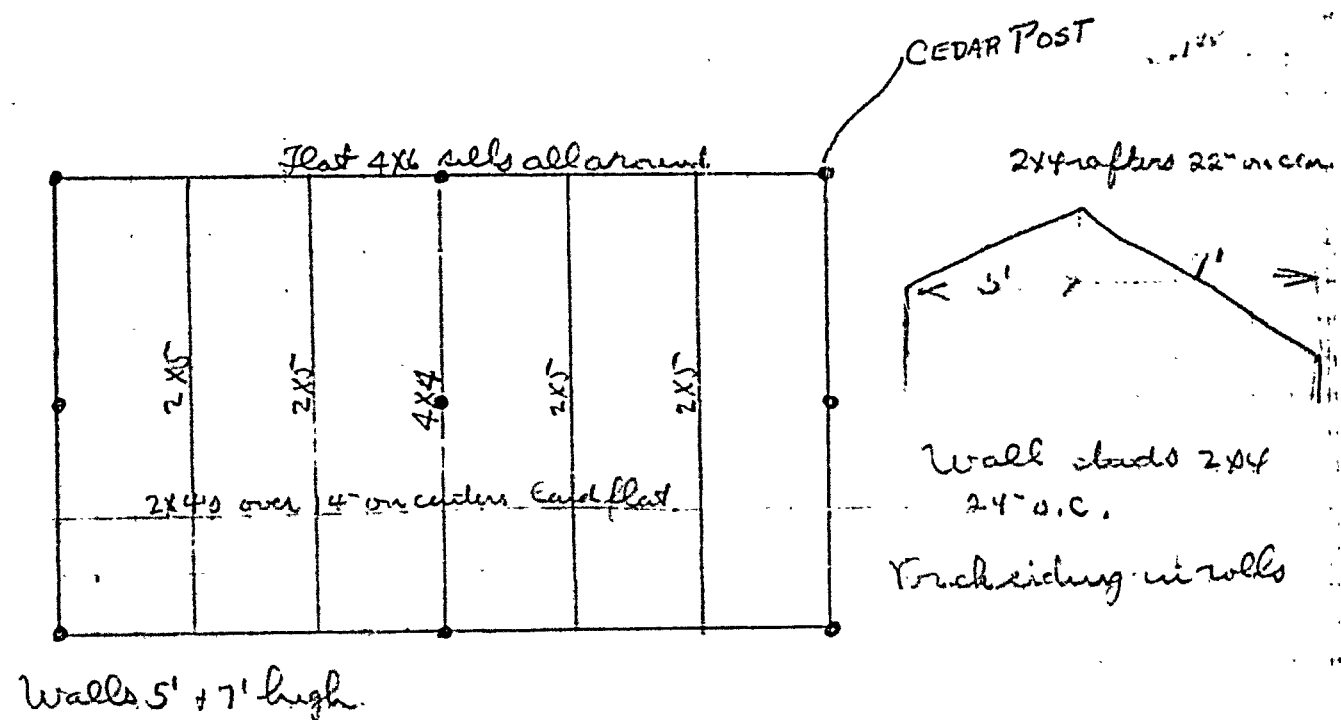 CEDAR POST
Flat 4X6 sills all around
2X4 rafters 22" on cen.
5' 7'
2X5 2X5 4X4 2X5 2X5
2X4's over 14" on centers laid flat.
Wall studs 2X4
24" o.c.
siding in rolls
Walls 5' + 7' high.